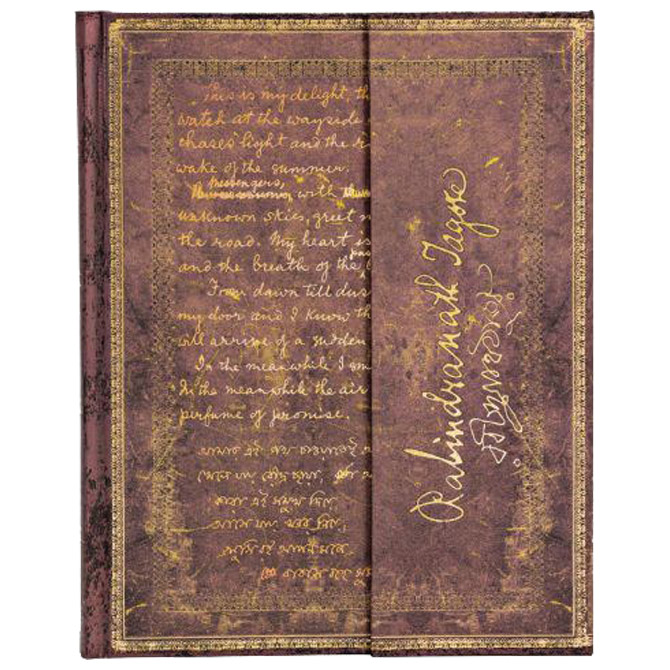 This is my delight, th
watch at the wayside
chases light and the r
wake of the summer.
messengers,
with
unknown skies, greet m
the road. My heart is
and the breath of the
From dawn till dus
my door and I know th
will arrive of a sudden
In the meanwhile I sm
In the meanwhile the air
perfume of promise.
আমার এই পথ চাওয়াতেই
খেলে যায় রৌদ্র ছায়া,
কারা এই সমুখ দিয়ে
আসে যায় খবর নিয়ে,
খুশি রই আপন মনে
বাতাস বহে সুম
Rabindranath Tagore
শ্রীরবীন্দ্রনাথ ঠাকুর